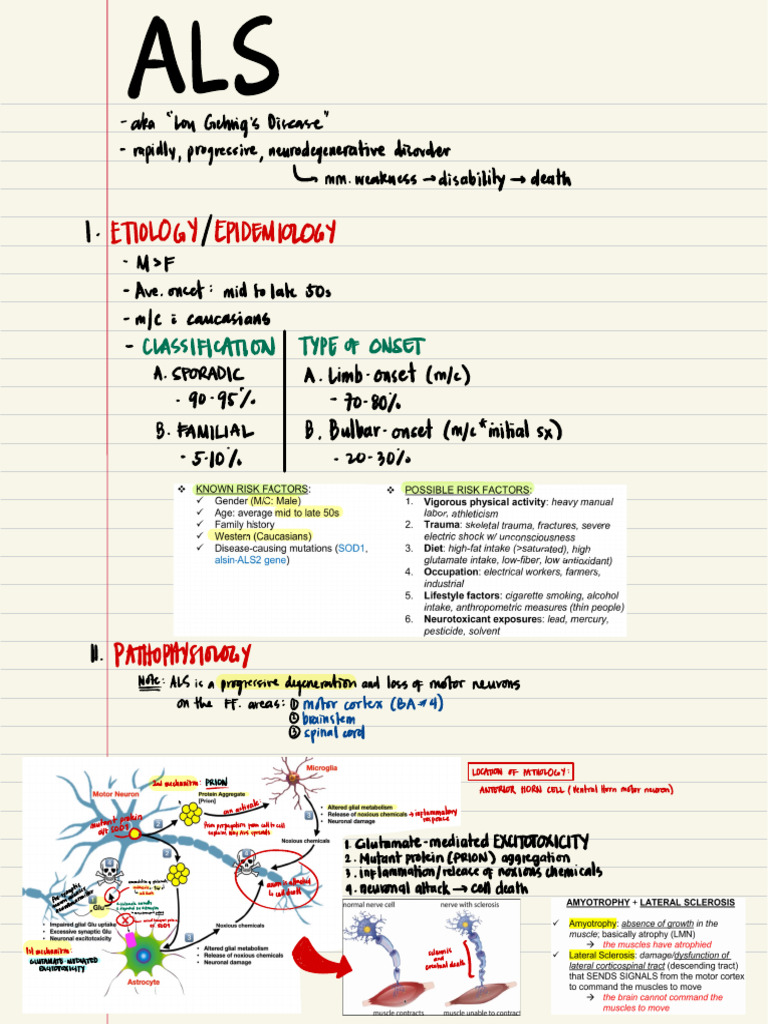 ALS
- aka "Lou Gehrig's Disease"
- rapidly, progressive, neurodegenerative disorder
mm. weakness → disability → death
I. ETIOLOGY/EPIDEMIOLOGY
- M>F
- Ave. onset: mid to late 50s
- m/c : caucasians
- CLASSIFICATION
A. SPORADIC
- 90-95%
B. FAMILIAL
- 5-10%
TYPE OF ONSET
A. Limb-onset (m/c)
- 70-80%
B. Bulbar-onset (m/c * initial sx)
- 20-30%
❖ KNOWN RISK FACTORS:
✓ Gender (M/C: Male)
✓ Age: average mid to late 50s
✓ Family history
✓ Western (Caucasians)
✓ Disease-causing mutations (SOD1,
alsin-ALS2 gene)
❖ POSSIBLE RISK FACTORS:
1. Vigorous physical activity: heavy manual
labor, athleticism
2. Trauma: skeletal trauma, fractures, severe
electric shock w/ unconsciousness
3. Diet: high-fat intake (>saturated), high
glutamate intake, low-fiber, low antioxidant)
4. Occupation: electrical workers, farmers,
industrial
5. Lifestyle factors: cigarette smoking, alcohol
intake, anthropometric measures (thin people)
6. Neurotoxicant exposures: lead, mercury,
pesticide, solvent
II. PATHOPHYSIOLOGY
Note: ALS is a progressive degeneration and loss of motor neurons
on the ff. areas: ① motor cortex (BA #4)
② brainstem
③ spinal cord
LOCATION OF PATHOLOGY:
ANTERIOR HORN CELL (Ventral Horn motor neuron)
Microglia
2nd mechanism: PRION
Motor Neuron
Protein Aggregate
[Prion]
can activate:
mutant protein
d/t SOD1
2
3
• Altered glial metabolism
• Release of noxious chemicals → inflammatory
response
• Neuronal damage
Prion propagation from cell to cell
explain why ALS spreads
Noxious chemicals
axon is attacked
→ cell death
1
Glu
• Impaired glial Glu uptake
• Excessive synaptic Glu
• Neuronal excitotoxicity
Noxious chemicals
3
• Altered glial metabolism
• Release of noxious chemicals
• Neuronal damage
1st mechanism:
GLUTAMATE-MEDIATED
EXCITOTOXICITY
Astrocyte
1. Glutamate-mediated EXCITOTOXICITY
2. Mutant protein (PRION) aggregation
3. inflammation/release of noxious chemicals
4. neuronal attack → cell death
normal nerve cell
nerve with sclerosis
sclerosis
and
neuronal death
muscle contracts
muscle unable to contract
AMYOTROPHY + LATERAL SCLEROSIS
✓ Amyotrophy: absence of growth in the
muscle; basically atrophy (LMN)
→ the muscles have atrophied
✓ Lateral Sclerosis: damage/dysfunction of
lateral corticospinal tract (descending tract)
that SENDS SIGNALS from the motor cortex
to command the muscles to move
→ the brain cannot command the
muscles to move